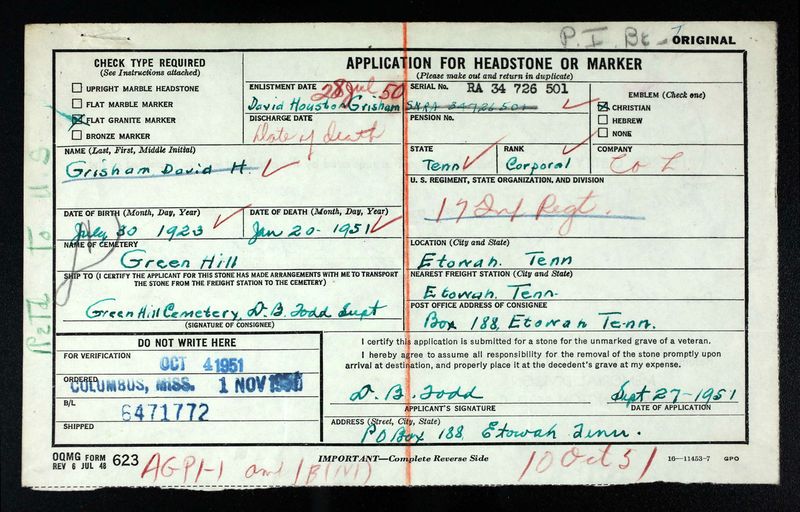 P.I. Br-7
ORIGINAL
CHECK TYPE REQUIRED
(See Instructions attached)
UPRIGHT MARBLE HEADSTONE
FLAT MARBLE MARKER
FLAT GRANITE MARKER
BRONZE MARKER
APPLICATION FOR HEADSTONE OR MARKER
(Please make out and return in duplicate)
ENLISTMENT DATE
28 Jul 50
David Houston Grisham
DISCHARGE DATE
Date of death
SERIAL No.
RA 34 726 501
SNRA 34726501
PENSION No.
EMBLEM (Check one)
CHRISTIAN
HEBREW
NONE
NAME (Last, First, Middle Initial)
Grisham David H.
STATE
Tenn
RANK
Corporal
COMPANY
Co L
U. S. REGIMENT, STATE ORGANIZATION, AND DIVISION
17 Inf Regt.
DATE OF BIRTH (Month, Day, Year)
July 30 1923
DATE OF DEATH (Month, Day, Year)
Jan 20 - 1951
NAME OF CEMETERY
Green Hill
LOCATION (City and State)
Etowah. Tenn
SHIP TO (I CERTIFY THE APPLICANT FOR THIS STONE HAS MADE ARRANGEMENTS WITH ME TO TRANSPORT THE STONE FROM THE FREIGHT STATION TO THE CEMETERY)
Green Hill Cemetery, D. B. Todd Supt
(SIGNATURE OF CONSIGNEE)
NEAREST FREIGHT STATION (City and State)
Etowah. Tenn.
POST OFFICE ADDRESS OF CONSIGNEE
Box 188, Etowah Tenn.
DO NOT WRITE HERE
FOR VERIFICATION
OCT 4 1951
ORDERED
COLUMBUS, MISS. 1 NOV 1951
B/L
6471772
SHIPPED
I certify this application is submitted for a stone for the unmarked grave of a veteran.
I hereby agree to assume all responsibility for the removal of the stone promptly upon
arrival at destination, and properly place it at the decedent's grave at my expense.
D. B. Todd
APPLICANT'S SIGNATURE
Sept 27-1951
DATE OF APPLICATION
ADDRESS (Street, City, State)
PO Box 188 Etowah Tenn.
OQMG FORM
REV 6 JUL 48
623
AGPI-1 and 1B(NI)
IMPORTANT—Complete Reverse Side
10 Oct 51
16—11453-7 GPO